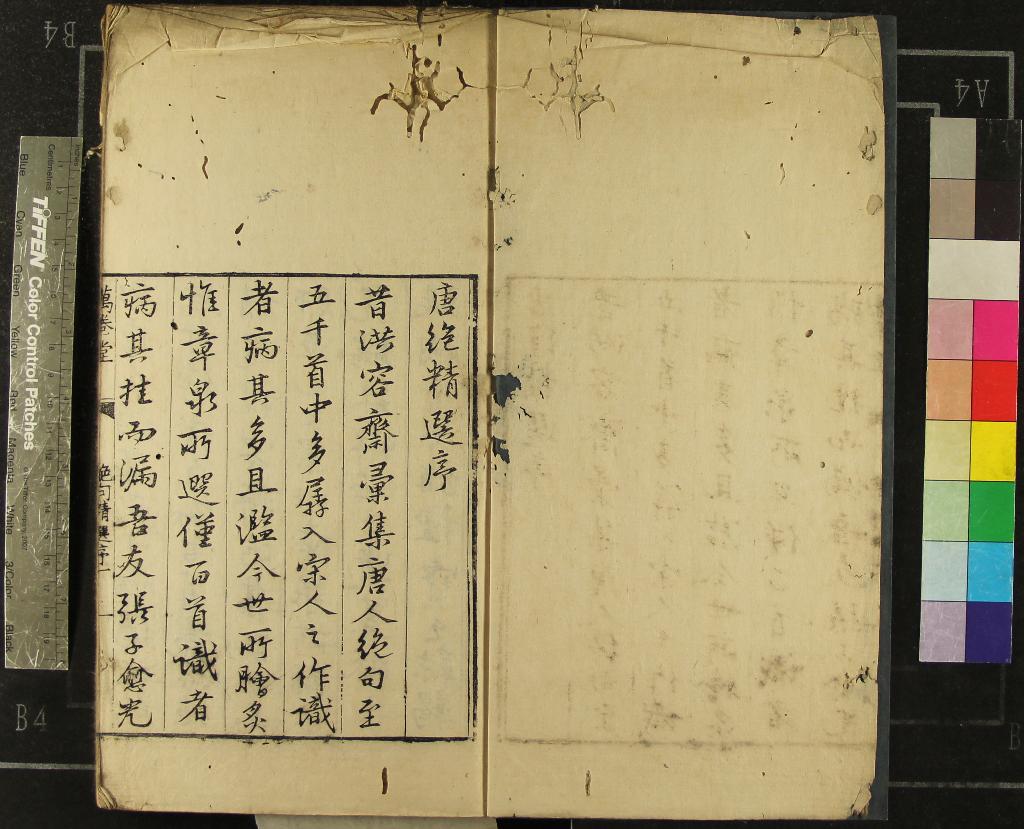 唐絕精選序
昔洪容齋彙集唐人絕句至
五千首中多孱入宋人之作識
者病其多且濫今世所膾炙
惟章泉所選僅百首識者
病其挂而漏吾友張子愈光
萬卷堂
絕句精選序
一
B4
A4
B4
TIFFEN Color Control Patches
Centimetres
Inches
Blue
Cyan
Green
Yellow
Red
Magenta
White
3/Color
Black
B